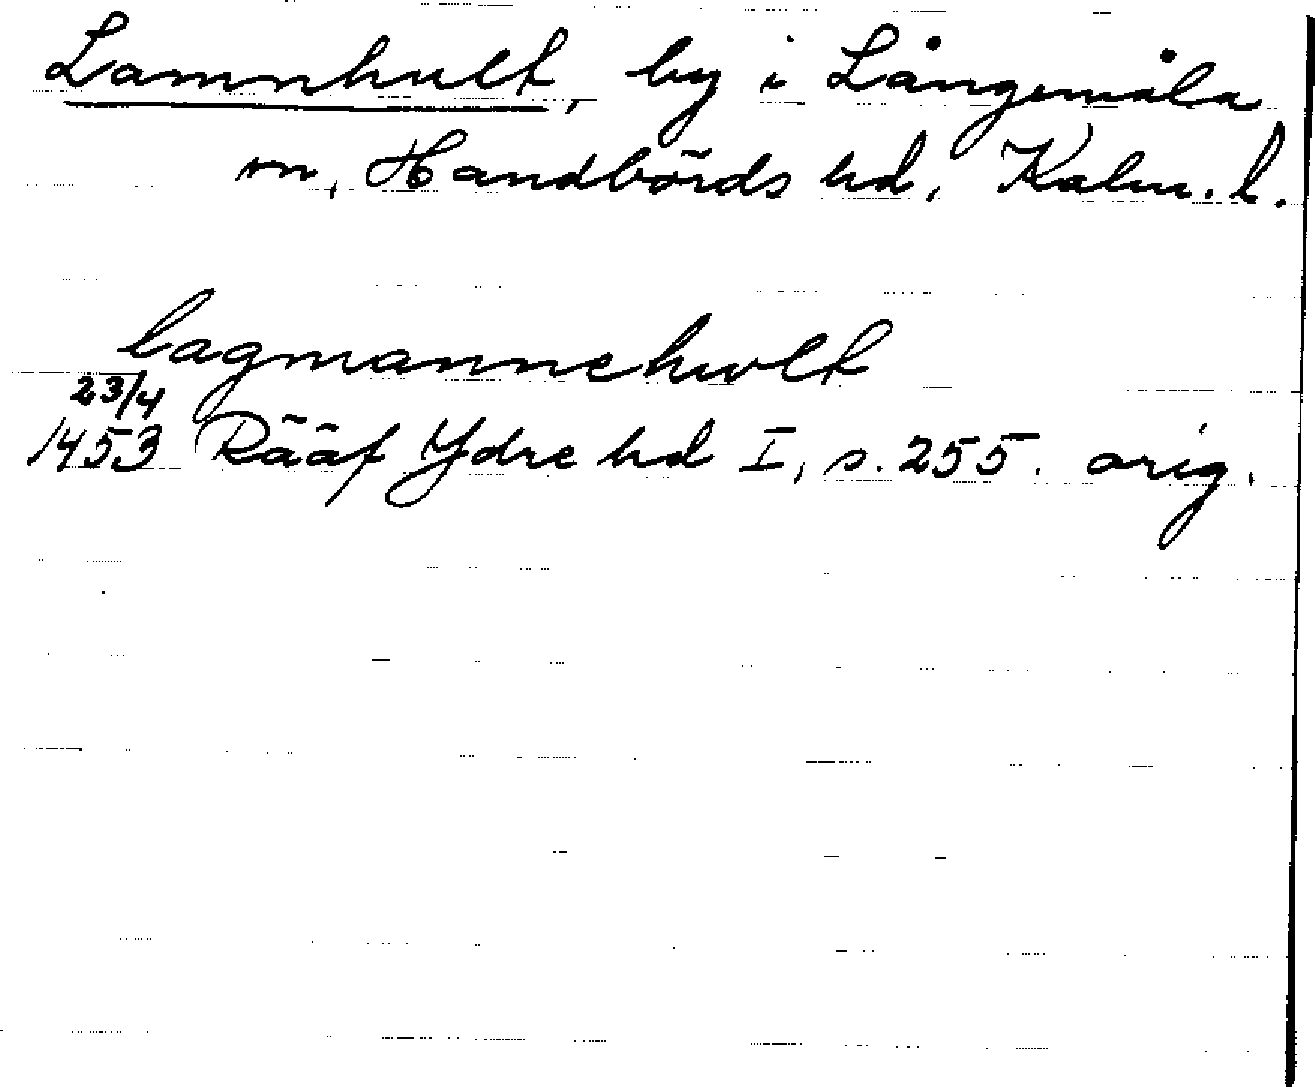 Lamnhult, by i Långemåla
sn, Handbörds hd, Kalm. l.
lagmannehwlt
23/4
1453 Rääf Ydre hd I, s. 255. orig.